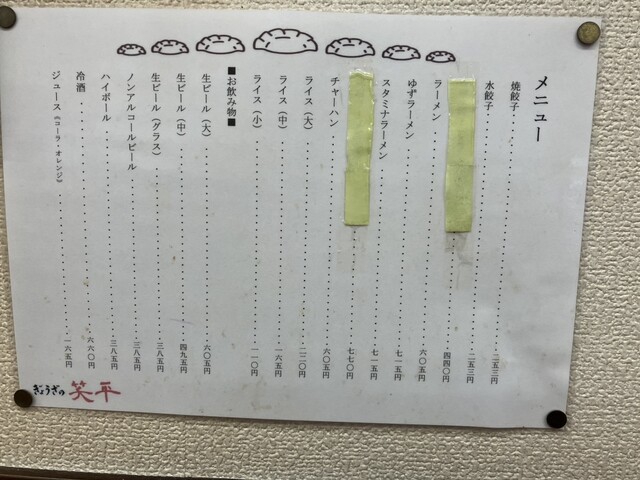 メニュー
焼餃子 二五三円
水餃子 二五三円
四四〇円
ラーメン 六〇五円
ゆずラーメン 七一五円
スタミナラーメン 七一五円
七七〇円
チャーハン 六〇五円
ライス（大） 二二〇円
ライス（中） 一六五円
ライス（小） 一一〇円
■お飲み物■
生ビール（大） 六〇五円
生ビール（中） 四九五円
生ビール（グラス） 三八五円
ノンアルコールビール 三八五円
ハイボール 三八五円
冷酒 六六〇円
ジュース（コーラ・オレンジ） 一六五円
ぎょうざの 笑平